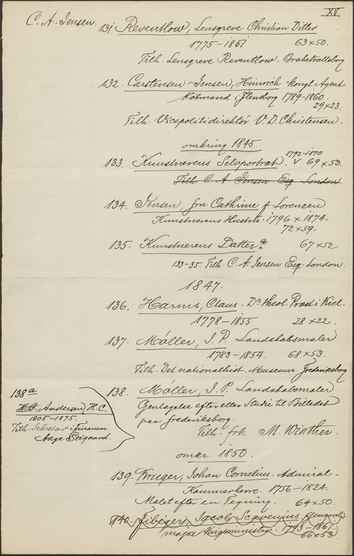 C. A. Jensen.
XI.
131 Reventlow, Lensgreve Christian Ditlev
1775-1851 63×50.
Tilh. Lensgreve Reventlow. Brahetrolleborg
132. Carstensen-Jensen, Hinrich. kongl Agent
Købmand Flensborg 1789-1860
29×23.
Tilh. Vicepolitidirektør V. D. Christensen.
omkring 1845.
133. Kunstnerens Selvportræt. 1792-1870 69×53.
Tilh. C. A. Jensen Esq. London
134. Jensen, fru Cathrine f. Lorenzen
Kunstnerens Hustru. 1796 × 1874.
72×59.
135. Kunstnerens Datter. 67×52
133-35 Tilh. C. A. Jensen Esq. London
1847.
136. Harms, Claus. Dr. theol. Provst i Kiel.
1778-1855 28×22.
137. Møller, J. P. Landskabsmaler
1783-1854. 68×53.
Tilh. Det nationalhist. Museum Frederiksborg
138. Møller, J. P. Landskabsmaler
Gentagelse efter eller Studie til Billedet
paa Frederiksborg
Tilh. frk. M. Winther.
138a
Anderson, H. C.
1805-1875.
Tilh.
Aage
omkr 1850.
139. Krieger, Johan Cornelius. Admiral.
Kammerherre. 1756-1824.
Malet efter en Tegning. 64×50.
140. Fibiger, Jacob Scavenius General-
major Krigsminister. 1793-1861.
66×53